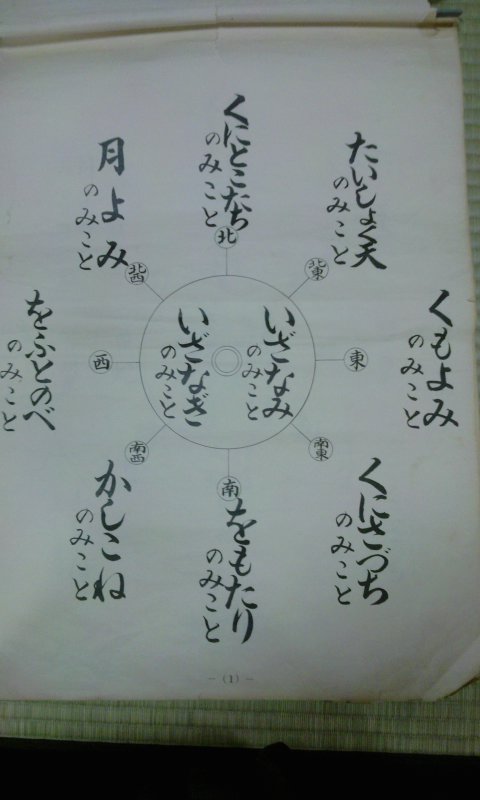 くにとこたち
のみこと
北
たいしょく天
のみこと
北東
くもよみ
のみこと
東
くにさづち
のみこと
南東
をもたり
のみこと
南
かしこね
のみこと
南西
をふとのべ
のみこと
西
月よみ
のみこと
北西
いざなみ
のみこと
いざなぎ
のみこと
- (1) -